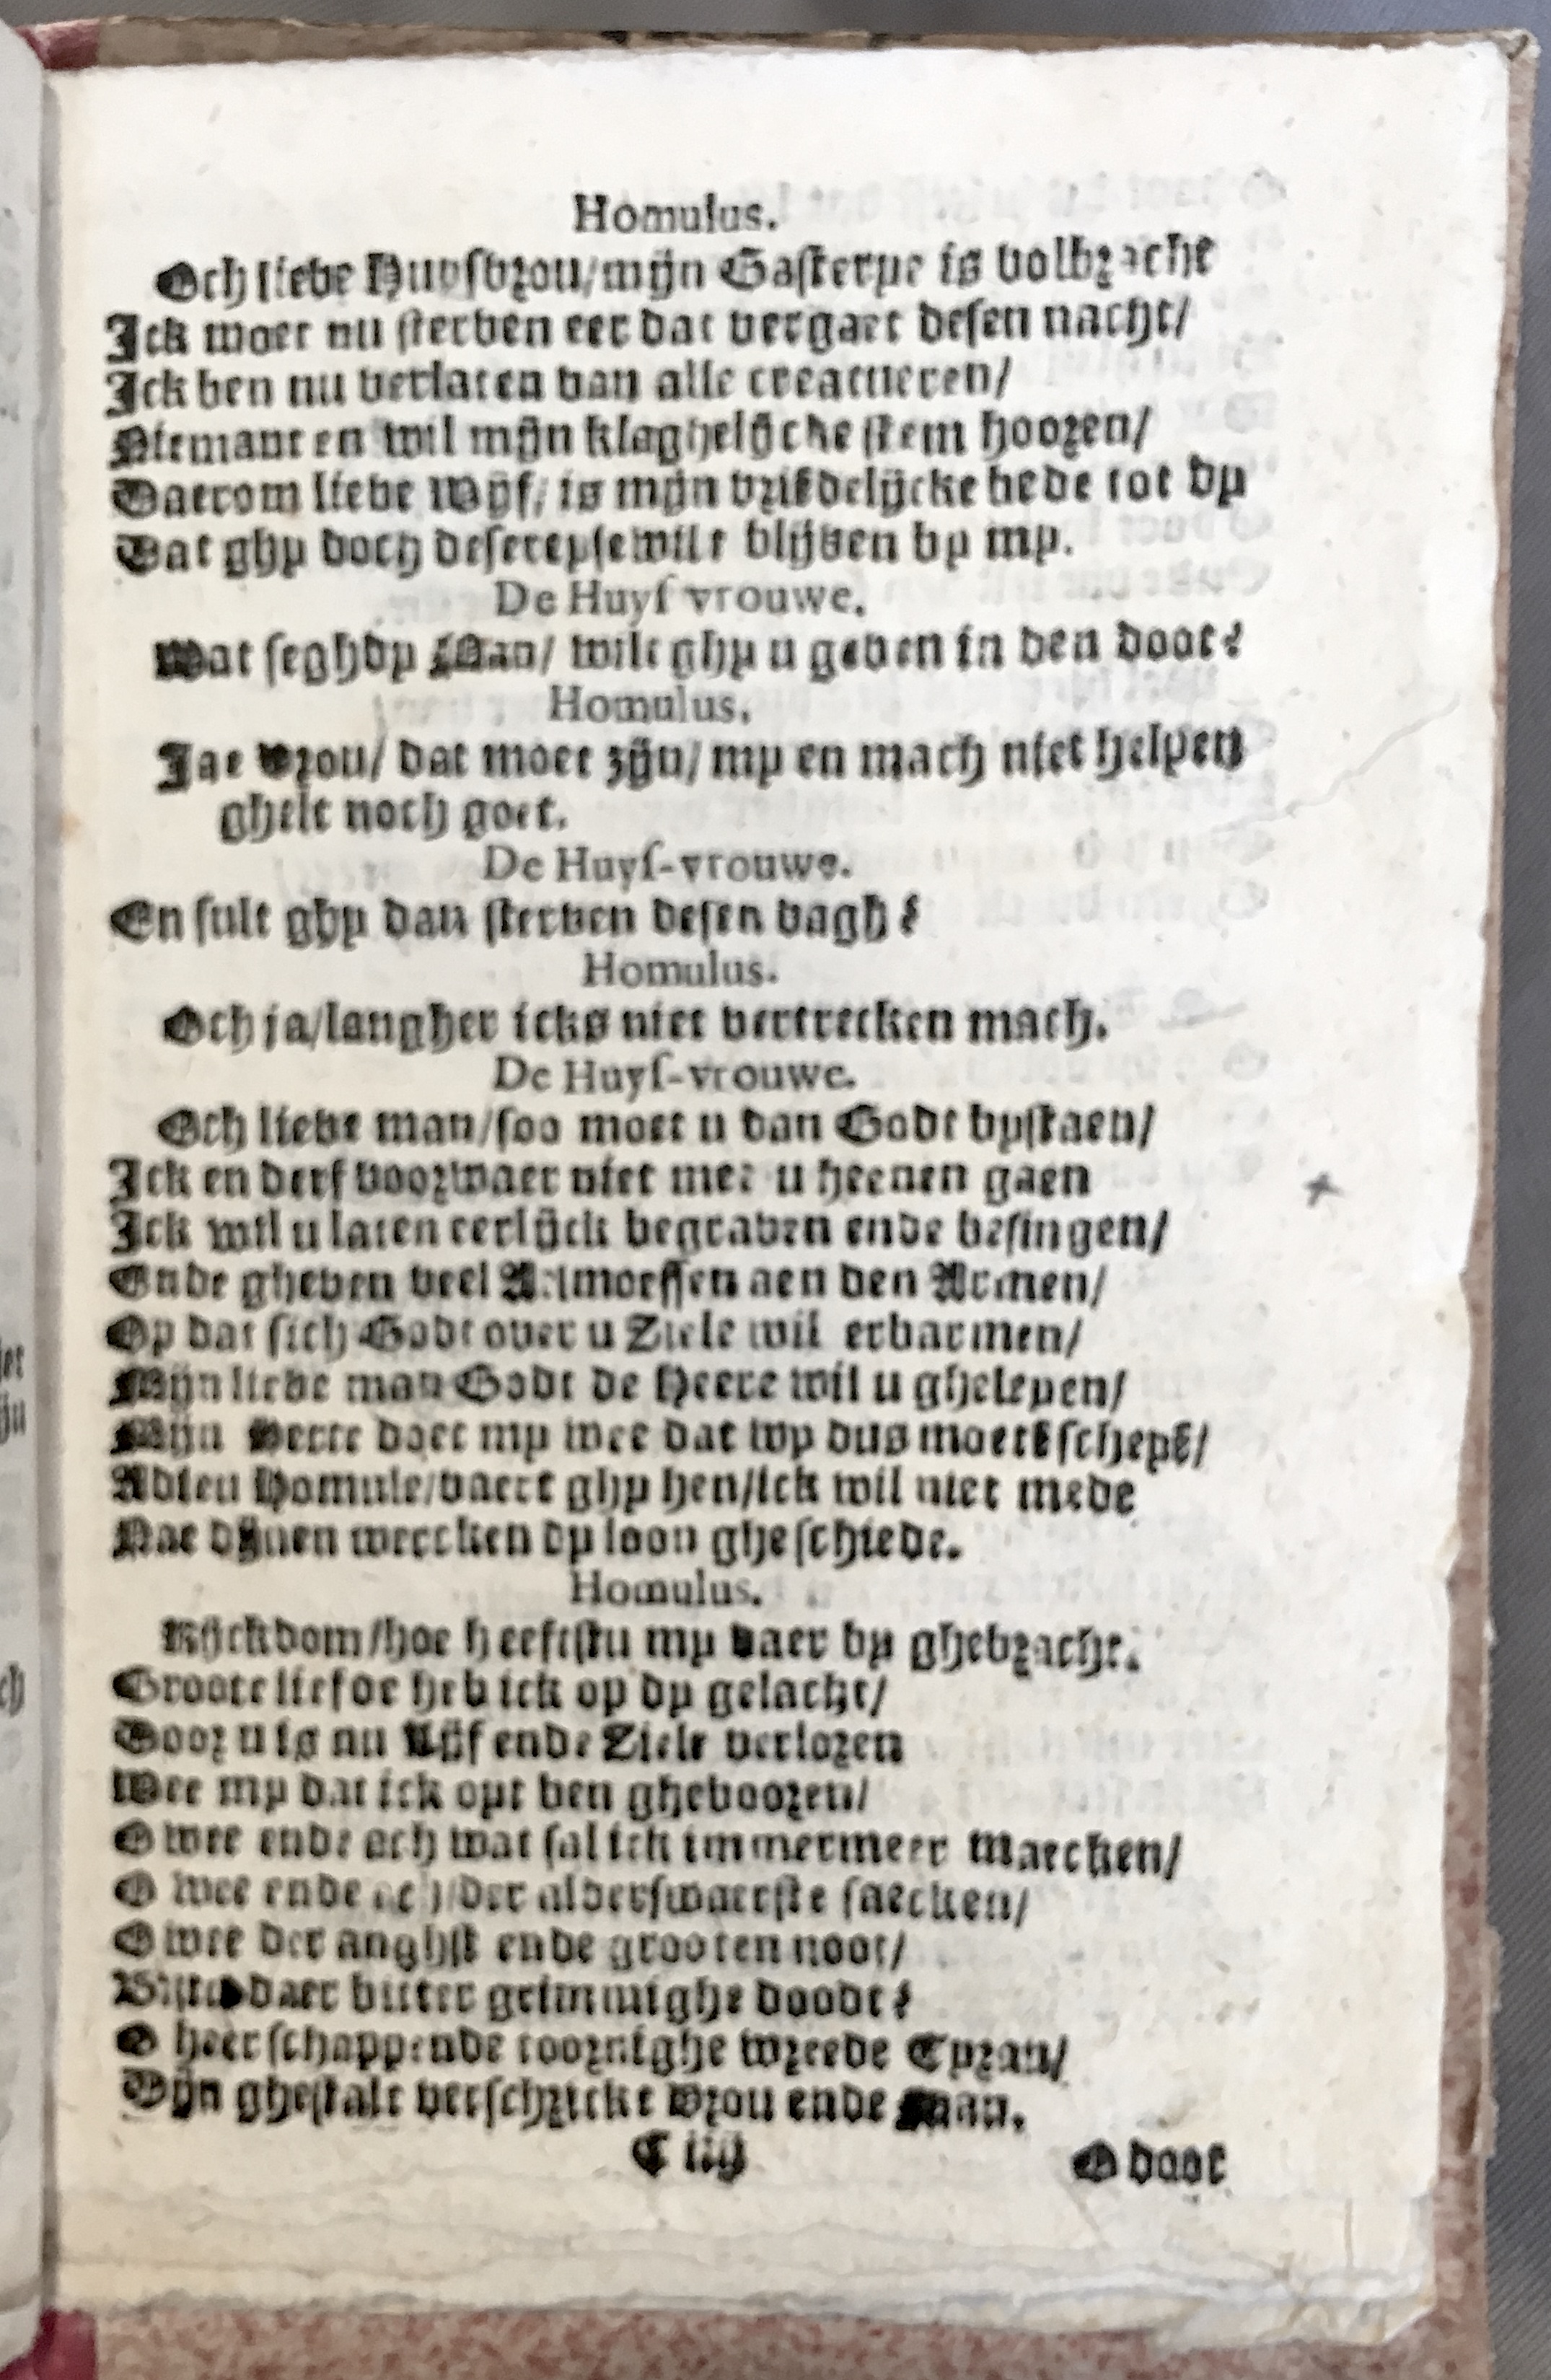 Homulus.
Och lieve Huysvrou/mijn Gasterye is volbracht
Ick moet nu sterven eer dat vergaet desen nacht/
Ick ben nu verlaten van alle creatueren/
Niemant en wil mijn klaghelijcke stem hooren/
Daerom lieve Wijf/ is mijn vriēdelijcke bede tot dy
Dat ghy doch dese reyse wilt blijven by my.
De Huyſ vrouwe.
Wat seghdy Man/ wilt ghy u geven in den doot?
Homulus.
Jae vrou/ dat moet zijn/ my en mach niet helpen
ghelt noch goet.
De Huyſ-vrouwe.
En sult ghy dan sterven desen dagh?
Homulus.
Och ja/langher icks niet vertrecken mach.
De Huyſ-vrouwe.
Och lieve man/soo moet u dan Godt bystaen/
Ick en derf voorwaer niet met u heenen gaen
Ick wil u laten eerlijck begraven ende besingen/
Ende gheven veel Aelmoessen aen den Armen/
Op dat sich Godt over u Ziele wil erbarmen/
Mijn lieve man Godt de Heere wil u gheleyen/
Mijn Herte doet my wee dat wy dus moetē scheyē/
Adieu Homule/vaert ghy hen/ick wil niet mede
Nae dijnen wercken dy loon gheschiede.
Homulus.
Rijckdom/hoe heeftstu my daer by ghebracht.
Groote liefde heb ick op dy gelacht/
Door u is nu Lijf ende Ziele verloren
Wee my dat ick oyt ben gheboren/
O wee ende och wat sal ick immermeer Maecken/
O wee ende ach/der alderswaerste saecken/
O wee der anghst ende grooten noot/
daer bitter grimmighe doodt?
O heerschappende toornighe wreede Tyran/
Dijn ghestalt verschrickt vrou ende Man.
C iiij
O doot